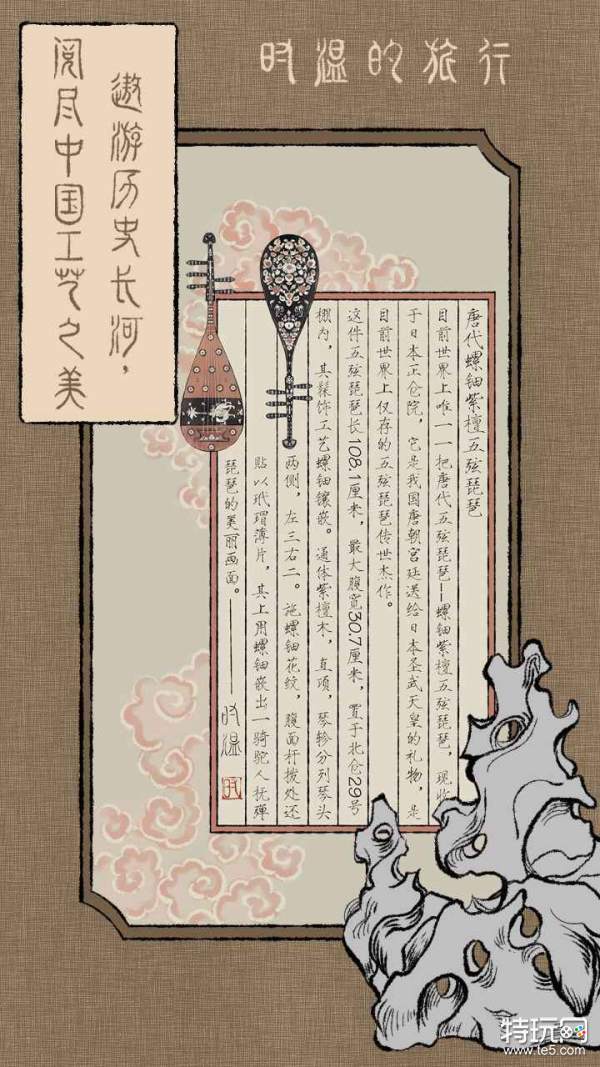 时温的旅行
遨游历史长河，
阅尽中国工艺之美
唐代螺钿紫檀五弦琵琶
目前世界上唯一一把唐代五弦琵琶--螺钿紫檀五弦琵琶，现收
于日本正仓院，它是我国唐朝宫廷送给日本圣武天皇的礼物，是
目前世界上仅存的五弦琵琶传世杰作。
这件五弦琵琶长108.1厘米，最大腹宽30.7厘米，置于北仓29号
棚内，其髹饰工艺螺钿镶嵌。通体紫檀木，直项，琴轸分列琴头
两侧，左三右二。施螺钿花纹，腹面杆拨处还
贴以玳瑁薄片，其上用螺钿嵌出一骑驼人抚弹
琵琶的美丽画面。——时温
时
特玩网
www.te5.com